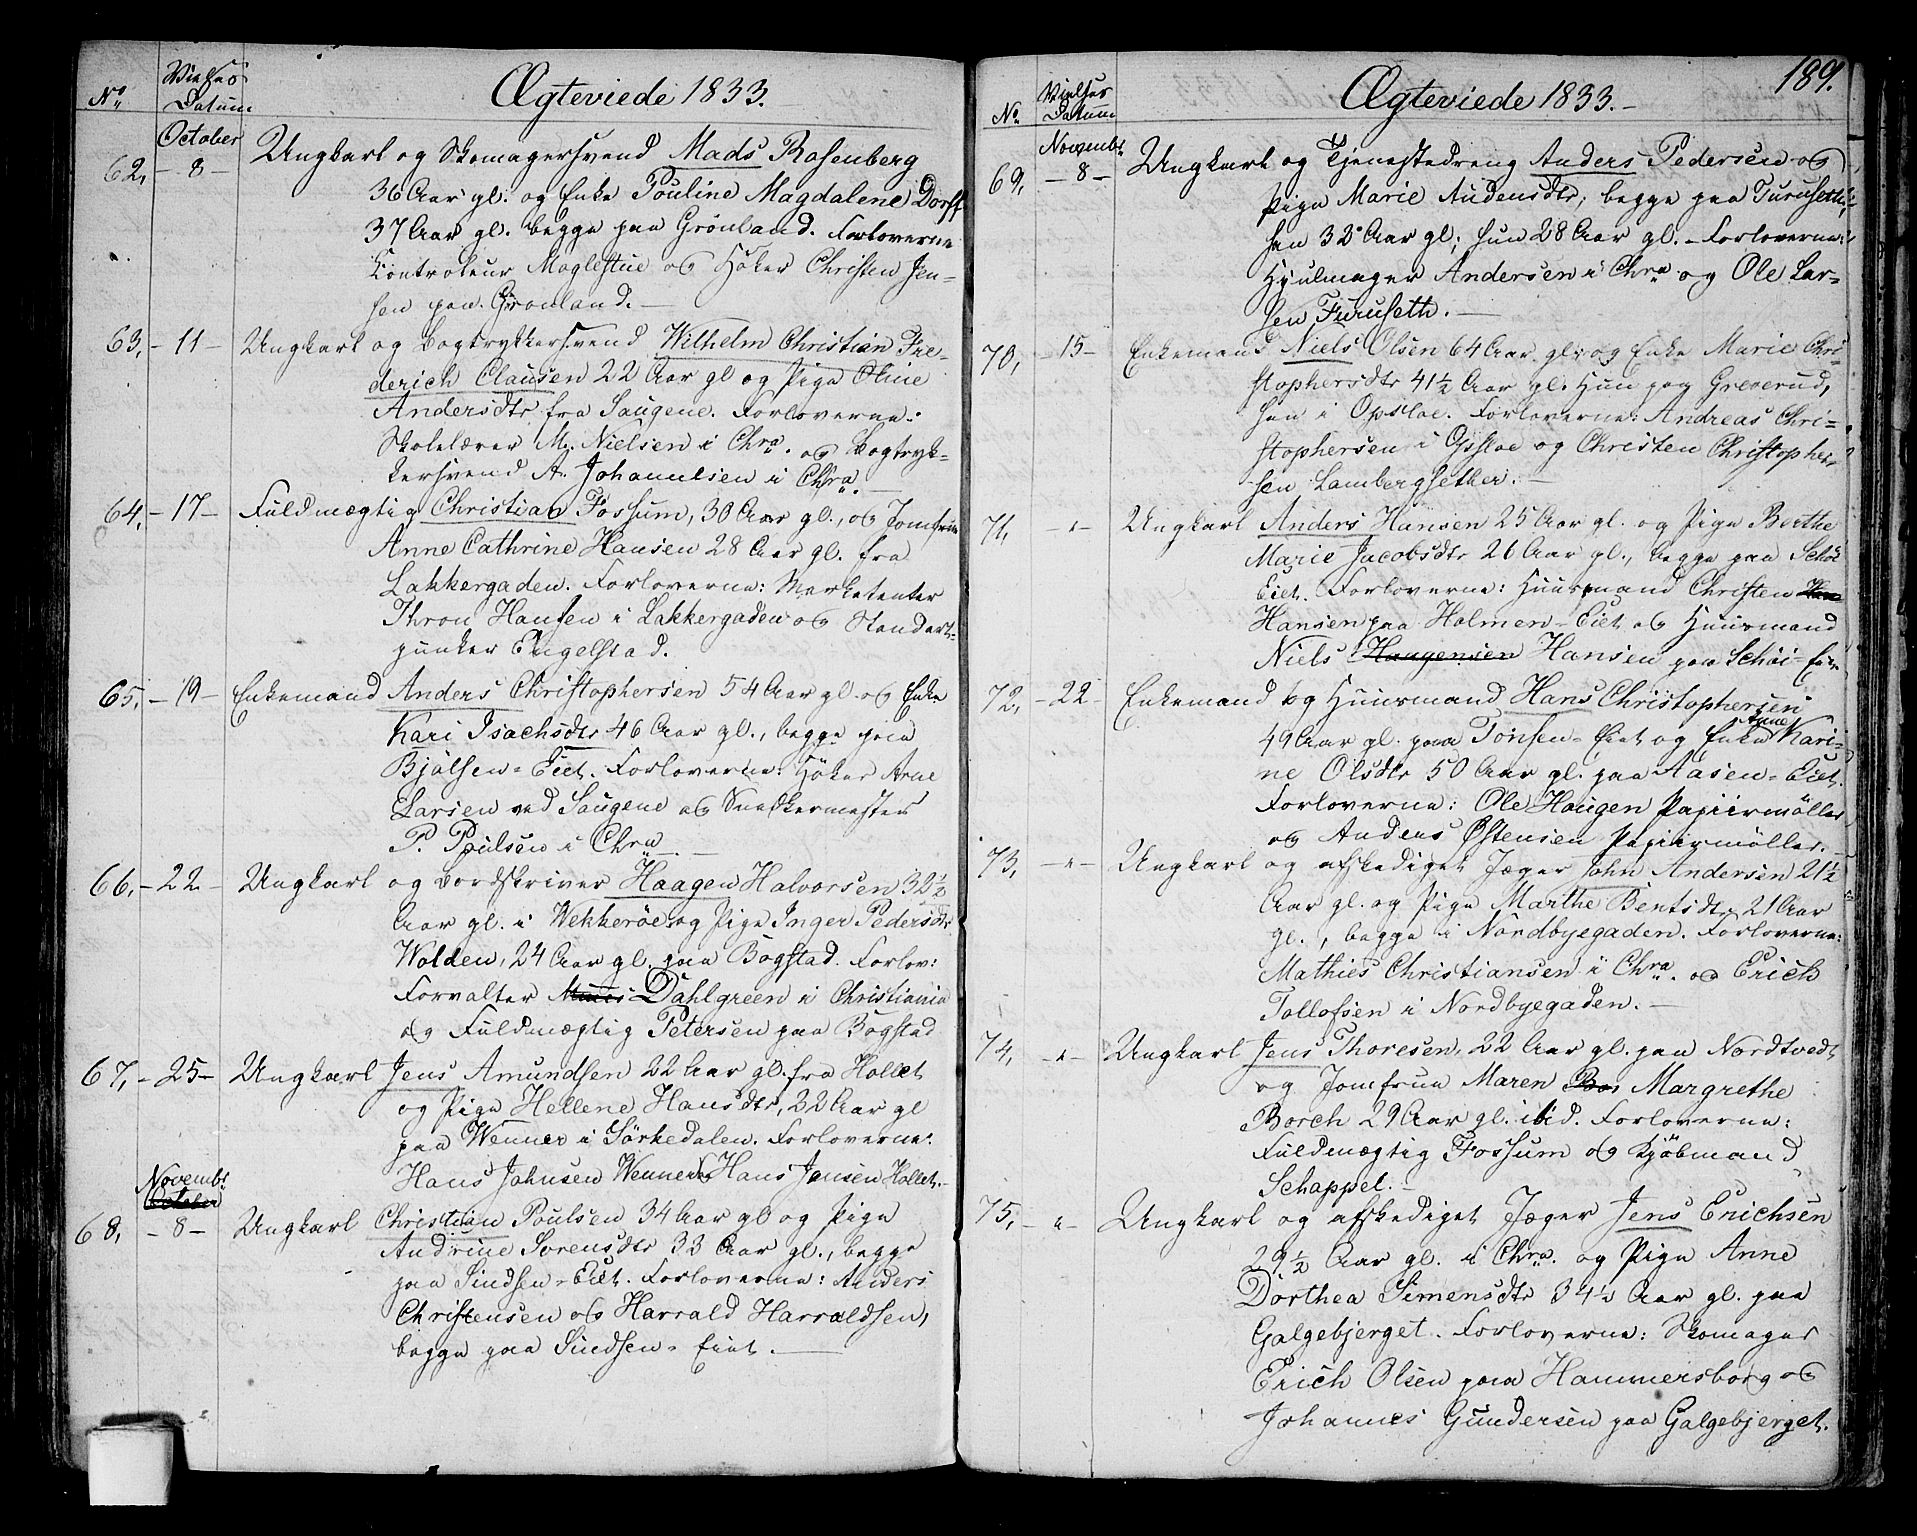 No. Vielses Datum Ægteviede 1833.
October
62, - 8 - Ungkarl og Skomagersvend Mads Rosenberg
36 Aar gl. og Enke Pouline Magdalene Dorff
37 Aar gl. begge paa Grønland. Forloverne
Controleur Moglestue og Höker Christen Jen-
sen paa Grønland. -
63, - 11 - Ungkarl og Bogtrykkersvend Wilhelm Christian Fre-
derich Clausen 22 Aar gl og Pige Oline
Andersdtr fra Saugene. Forloverne:
Skolelærer M. Nielsen i Chra. og Bogtryk-
kersvend A. Johannesen i Chra. -
64, - 17 - Fuldmægtig Christian Fossum, 30 Aar gl., og Jomfrue
Anne Cathrine Hansen 28 Aar gl. fra
Lakkergaden. Forloverne: Marketenter
Thron Hansen i Lakkergaden og Standart-
junker Engelstad.
65, - 19 - Enkemand Anders Christophersen 54 Aar gl og Enke
Kari Isachsdtr 46 Aar gl., begge paa
Bjølsen-Eiet. Forloverne: Höker Arne
Larsen ved Saugene og Snedkermester
P. Poulsen i Chra. -
66, - 22 - Ungkarl og Bordskriver Haagen Halvorsen 32½
Aar gl. i Wekkerøe og Pige Inger Pedersdtr
Wolden, 24 Aar gl. paa Bogstad. Forlov:
Forvalter Dahlgreen i Christiania
og Fuldmægtig Petersen paa Bogstad
67, - 25 - Ungkarl Jens Amundsen 22 Aar gl. fra Hollet
og Pige Hellene Hansdtr, 22 Aar gl
paa Wenner i Sørkedalen. Forloverne:
Hans Johnsen Wenner og Hans Jensen Hollet. -
Novembr
October
68, - 8 - Ungkarl Christian Poulsen 34 Aar gl og Pige
Andrine Sørensdtr 33 Aar gl., begge
paa Sindsen-Eiet. Forloverne: Anders
Christensen og Harrald Harraldsen,
begge paa Sindsen-Eiet. -
189.
No. Vielses Datum Ægteviede 1833. -
Novembr
69, - 8 - Ungkarl og Tjenestedreng Anders Pedersen og
Pige Marie Audensdtr, begge paa Furuseth,
han 32 Aar gl; hun 28 Aar gl. - Forloverne:
Hjulmager Andersen i Chra og Ole Lar-
sen Furuseth. -
70, - 15 - Enkemand Niels Olsen 64 Aar gl; og Enke Marie Chri-
stophersdtr 41½ Aar gl. Hun paa Greverud,
han i Opsloe. Forloverne: Andreas Chri-
stophersen i Opsloe og Christen Christopher-
sen Lambergsether. -
71, - " - Ungkarl Anders Hansen 25 Aar gl. og Pige Berthe
Marie Jacobsdtr 26 Aar gl., begge paa Schøi
Eiet. Forloverne: Huusmand Christen Han
Hansen paa Holmen-Eiet og Huusmand
Niels Haagensen Hansen paa Schøi-Eiet
72, - 22 - Enkemand og Huusmand Hans Christophersen
49 Aar gl. paa Tonsen-Eiet og Enke Anne Kari-
ne Olsdtr 50 Aar gl. paa Aasen-Eiet.
Forloverne: Ole Haugen Papiirmøller
og Anders Østensen Papiirmøller. -
73, - " - Ungkarl og afskediget Jæger John Andersen 21½
Aar gl. og Pige Marthe Bentsdtr 21 Aar
gl., begge i Nordbyegaden. Forloverne:
Mathies Christiansen i Chra. og Erich
Tollofsen i Nordbyegaden. -
74, - " - Ungkarl Jens Thoresen, 22 Aar gl. paa Nordtvedt
og Jomfrue Maren Bor Margrethe
Borch 29 Aar gl. ibid. Forloverne:
Fuldmægtig Fossum og Kjøbmand
Schappel. -
75, - " - Ungkarl og afskediget Jæger Jens Erichsen
29½ Aar gl. i Chra. og Pige Anne
Dorthea Simensdtr 34½ Aar gl. paa
Galgebjerget. Forloverne: Skomager
Erich Olsen paa Hammersborg og
Johannes Gundersen paa Galgebjerget.